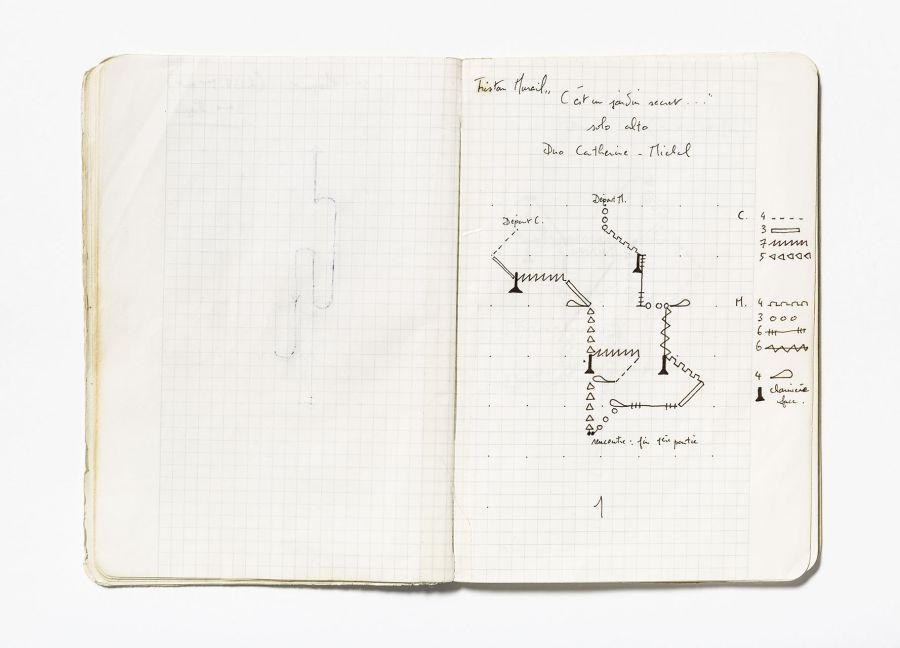 Tristan Murail,,
C'est un jardin secret..."
solo alto
Duo Catherine - Michel
Départ M.
Départ C.
C. 4
3
7
5
M. 4
3
6
6
4
clairière
face.
rencontre : fin 1ère partie
1